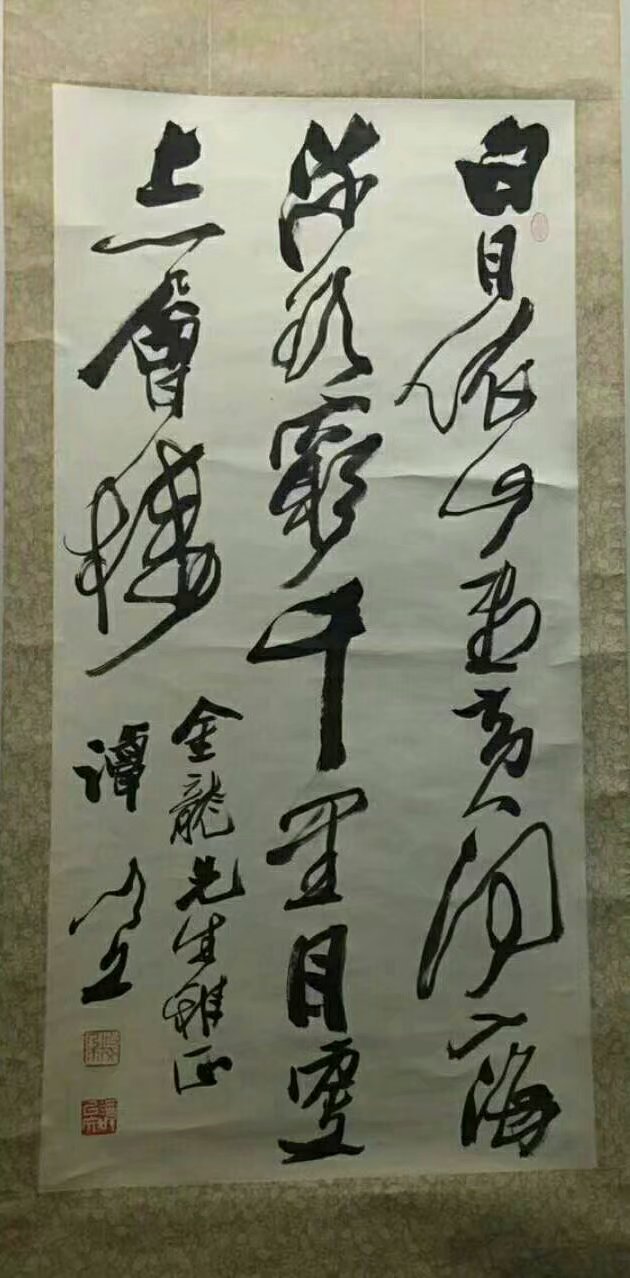 白日依山盡黃河入海
流欲窮千里目更
上一層樓
金龍先生雅正
譚以文